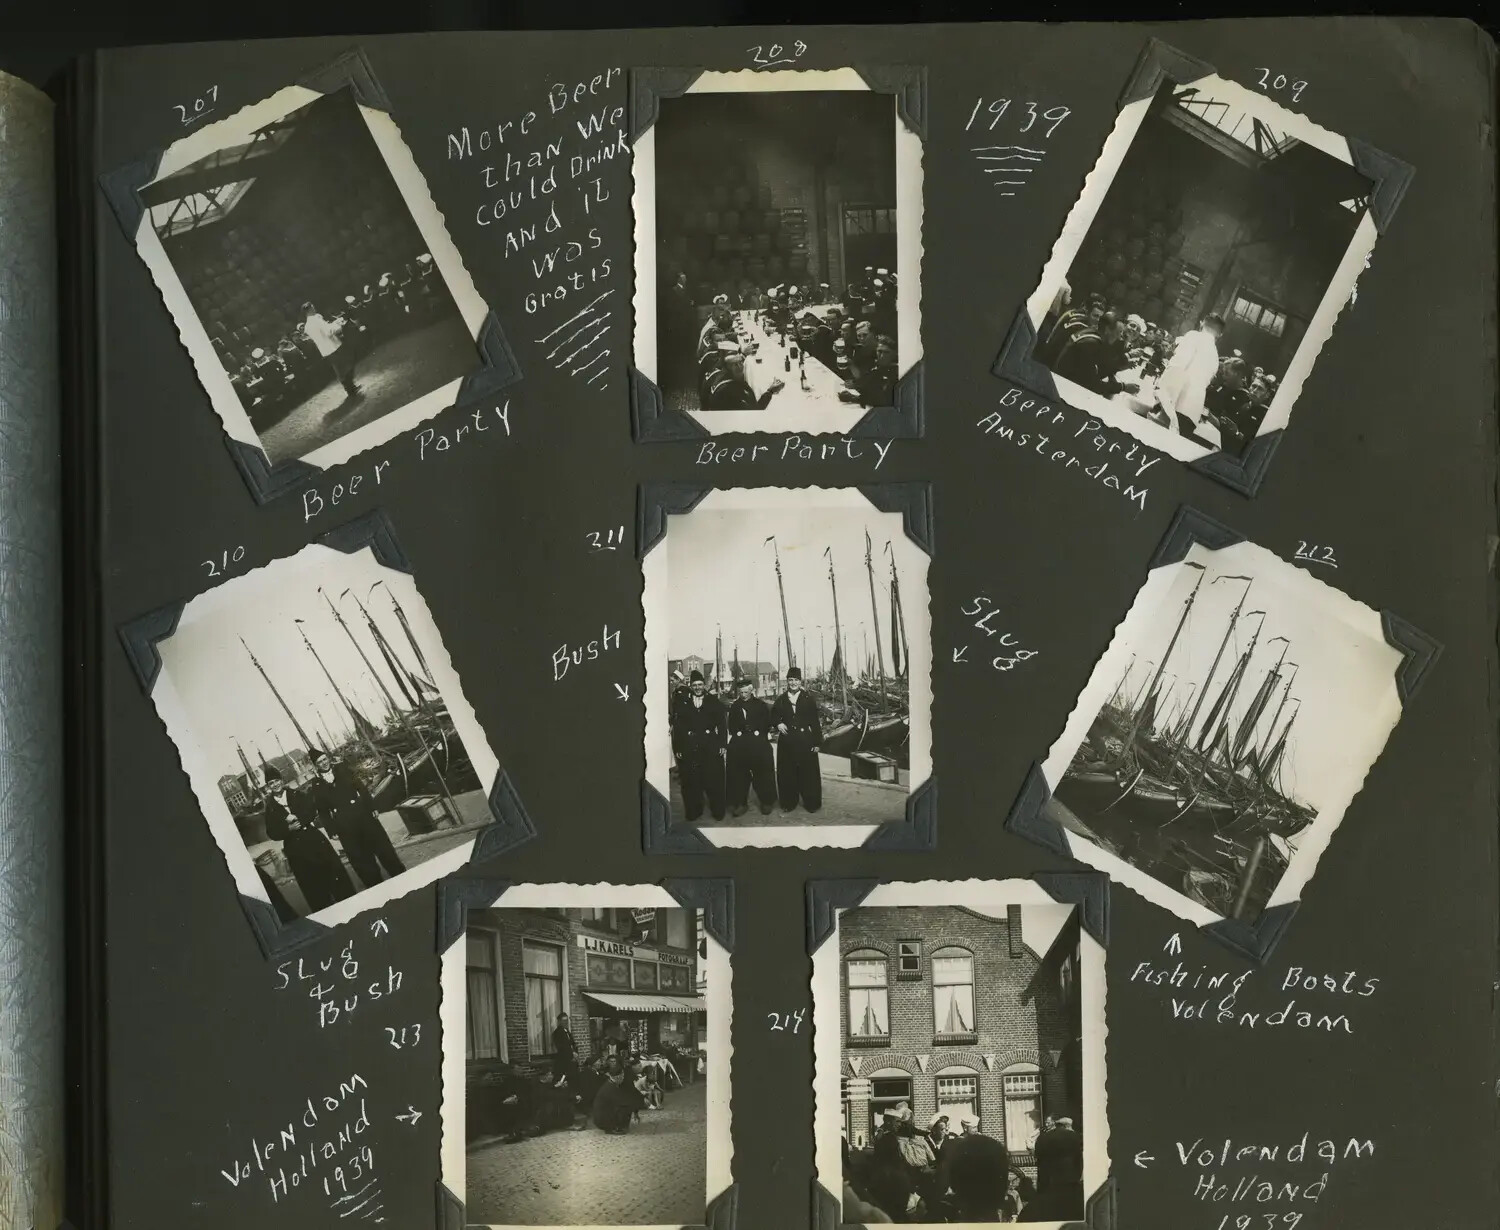 207
More Beer
than We
could Drink
And it
was
Gratis
208
1939
209
Beer Party
Beer Party
Beer Party
Amsterdam
210
211
Bush
Slug
212
Slug
&
Bush
Fishing Boats
Volendam
213
L.J. KARELS FOTOGRAAF
214
Volendam
Holland
1939
Volendam
Holland
1939